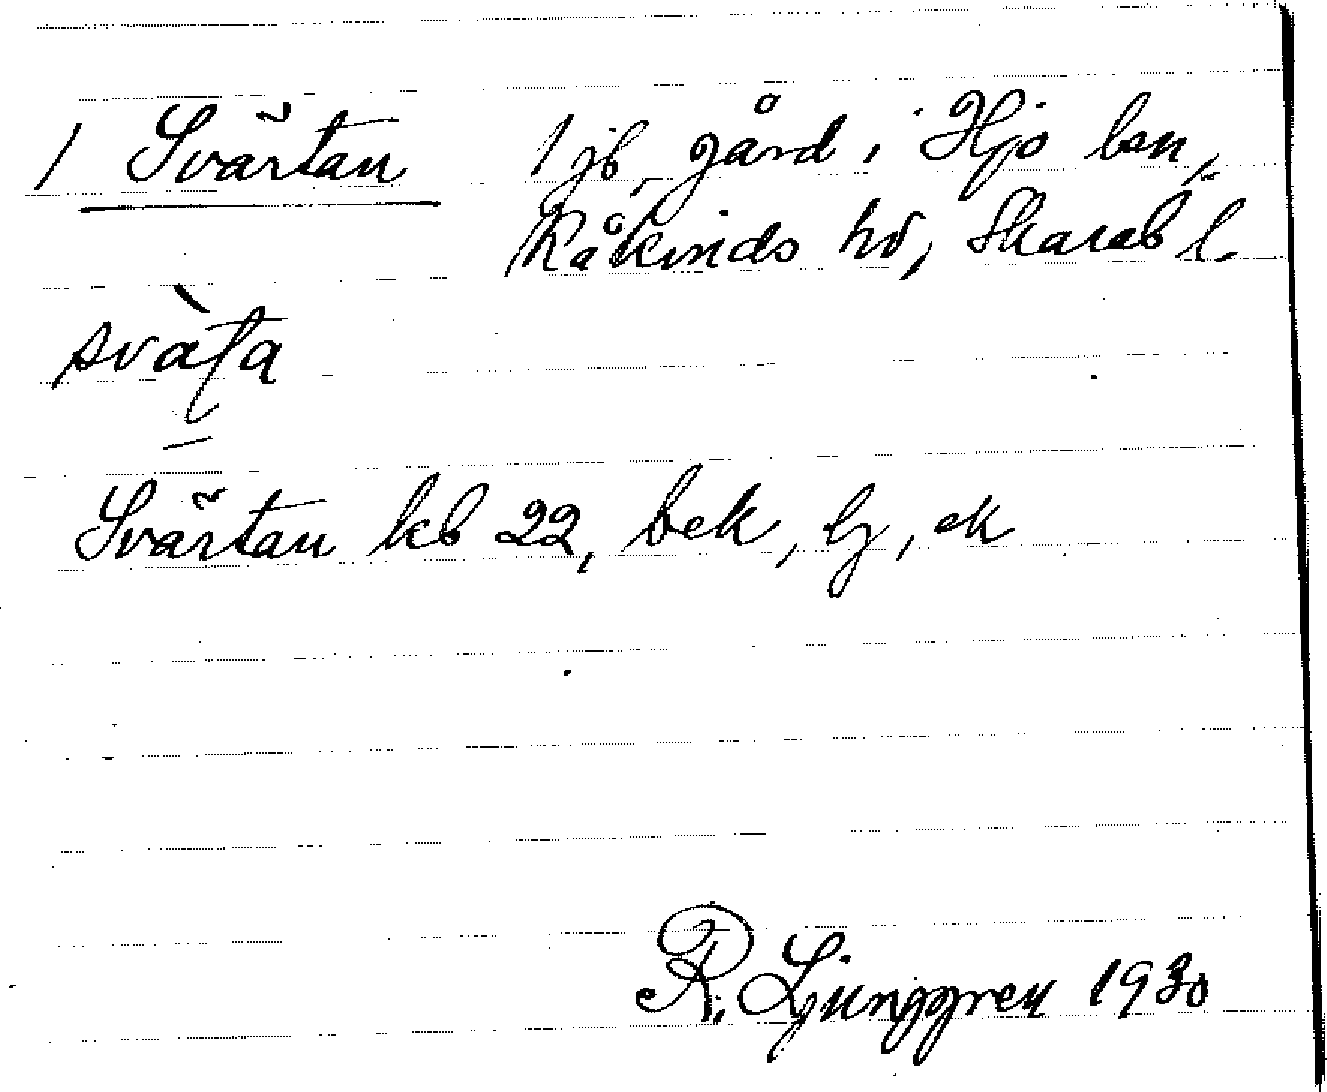 1 Svärtan 1 jb, gård i Hjo lsn,
Kåkinds hd, Skarab l.
svàʈa
Svärtan kb 22, bek, lj, ek
R. Ljunggren 1930